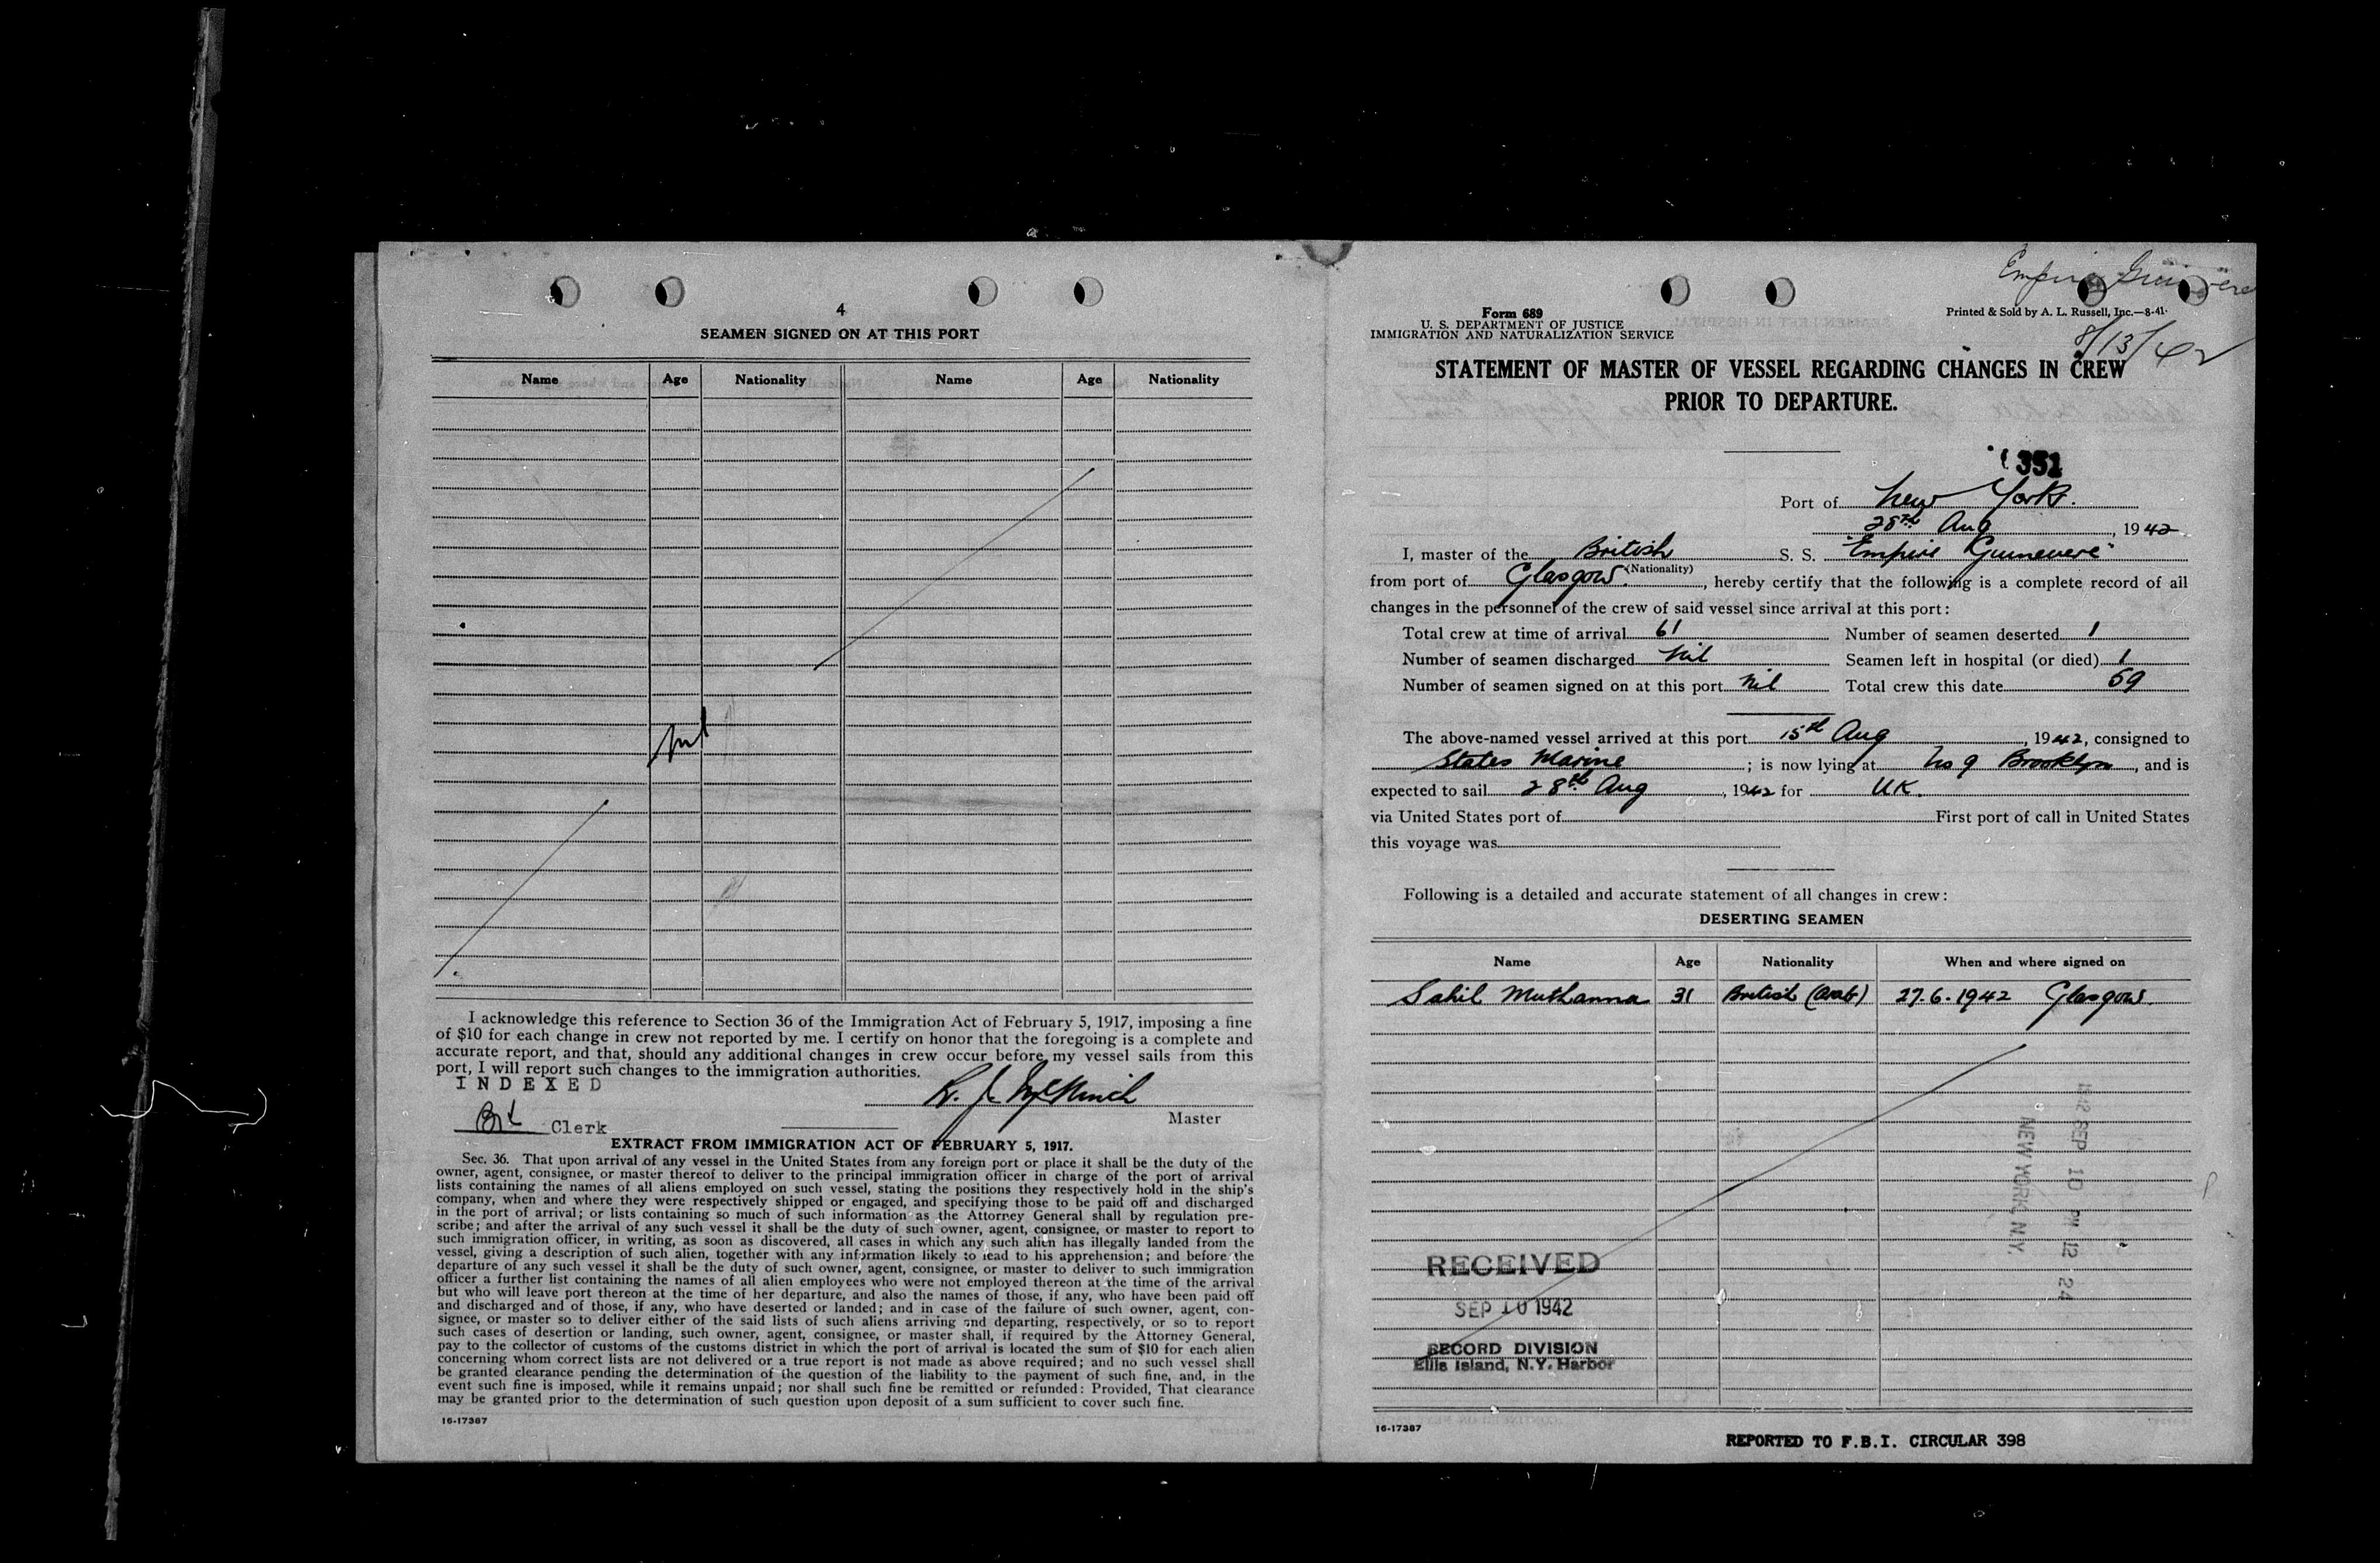 4
SEAMEN SIGNED ON AT THIS PORT
Name Age Nationality Name Age Nationality
Nil
I acknowledge this reference to Section 36 of the Immigration Act of February 5, 1917, imposing a fine
of $10 for each change in crew not reported by me. I certify on honor that the foregoing is a complete and
accurate report, and that, should any additional changes in crew occur before my vessel sails from this
port, I will report such changes to the immigration authorities.
INDEXED
Clerk
Master
EXTRACT FROM IMMIGRATION ACT OF FEBRUARY 5, 1917.
Sec. 36. That upon arrival of any vessel in the United States from any foreign port or place it shall be the duty of the
owner, agent, consignee, or master thereof to deliver to the principal immigration officer in charge of the port of arrival
lists containing the names of all aliens employed on such vessel, stating the positions they respectively hold in the ship's
company, when and where they were respectively shipped or engaged, and specifying those to be paid off and discharged
in the port of arrival; or lists containing so much of such information as the Attorney General shall by regulation pre-
scribe; and after the arrival of any such vessel it shall be the duty of such owner, agent, consignee, or master to report to
such immigration officer, in writing, as soon as discovered, all cases in which any such alien has illegally landed from the
vessel, giving a description of such alien, together with any information likely to lead to his apprehension; and before the
departure of any such vessel it shall be the duty of such owner, agent, consignee, or master to deliver to such immigration
officer a further list containing the names of all alien employees who were not employed thereon at the time of the arrival
but who will leave port thereon at the time of her departure, and also the names of those, if any, who have been paid off
and discharged and of those, if any, who have deserted or landed; and in case of the failure of such owner, agent, con-
signee, or master so to deliver either of the said lists of such aliens arriving and departing, respectively, or so to report
such cases of desertion or landing, such owner, agent, consignee, or master shall, if required by the Attorney General,
pay to the collector of customs of the customs district in which the port of arrival is located the sum of $10 for each alien
concerning whom correct lists are not delivered or a true report is not made as above required; and no such vessel shall
be granted clearance pending the determination of the question of the liability to the payment of such fine, and, in the
event such fine is imposed, while it remains unpaid; nor shall such fine be remitted or refunded: Provided, That clearance
may be granted prior to the determination of such question upon deposit of a sum sufficient to cover such fine.
16-17387
Empire Guinevere
Form 689
U. S. DEPARTMENT OF JUSTICE
IMMIGRATION AND NATURALIZATION SERVICE
Printed & Sold by A. L. Russell, Inc.—8-41.
8/13/42
STATEMENT OF MASTER OF VESSEL REGARDING CHANGES IN CREW
PRIOR TO DEPARTURE.
351
Port of New York.
28th Aug, 1942
I, master of the British S. S. "Empire Guinevere"
(Nationality)
from port of Glasgow., hereby certify that the following is a complete record of all
changes in the personnel of the crew of said vessel since arrival at this port:
Total crew at time of arrival 61 Number of seamen deserted 1
Number of seamen discharged Nil Seamen left in hospital (or died) 1
Number of seamen signed on at this port Nil Total crew this date 59
The above-named vessel arrived at this port 15th Aug, 1942, consigned to
States Marine; is now lying at No 9 Brooklyn, and is
expected to sail 28th Aug, 1942 for UK.
via United States port of First port of call in United States
this voyage was
Following is a detailed and accurate statement of all changes in crew:
DESERTING SEAMEN
Name Age Nationality When and where signed on
Sahil Muthanna 31 British (Arab) 27.6.1942 Glasgow.
1942 SEP 10 PM 12 24
NEW YORK, N.Y.
RECEIVED
SEP 10 1942
RECORD DIVISION
Ellis Island, N.Y. Harbor
16-17387
REPORTED TO F.B.I. CIRCULAR 398